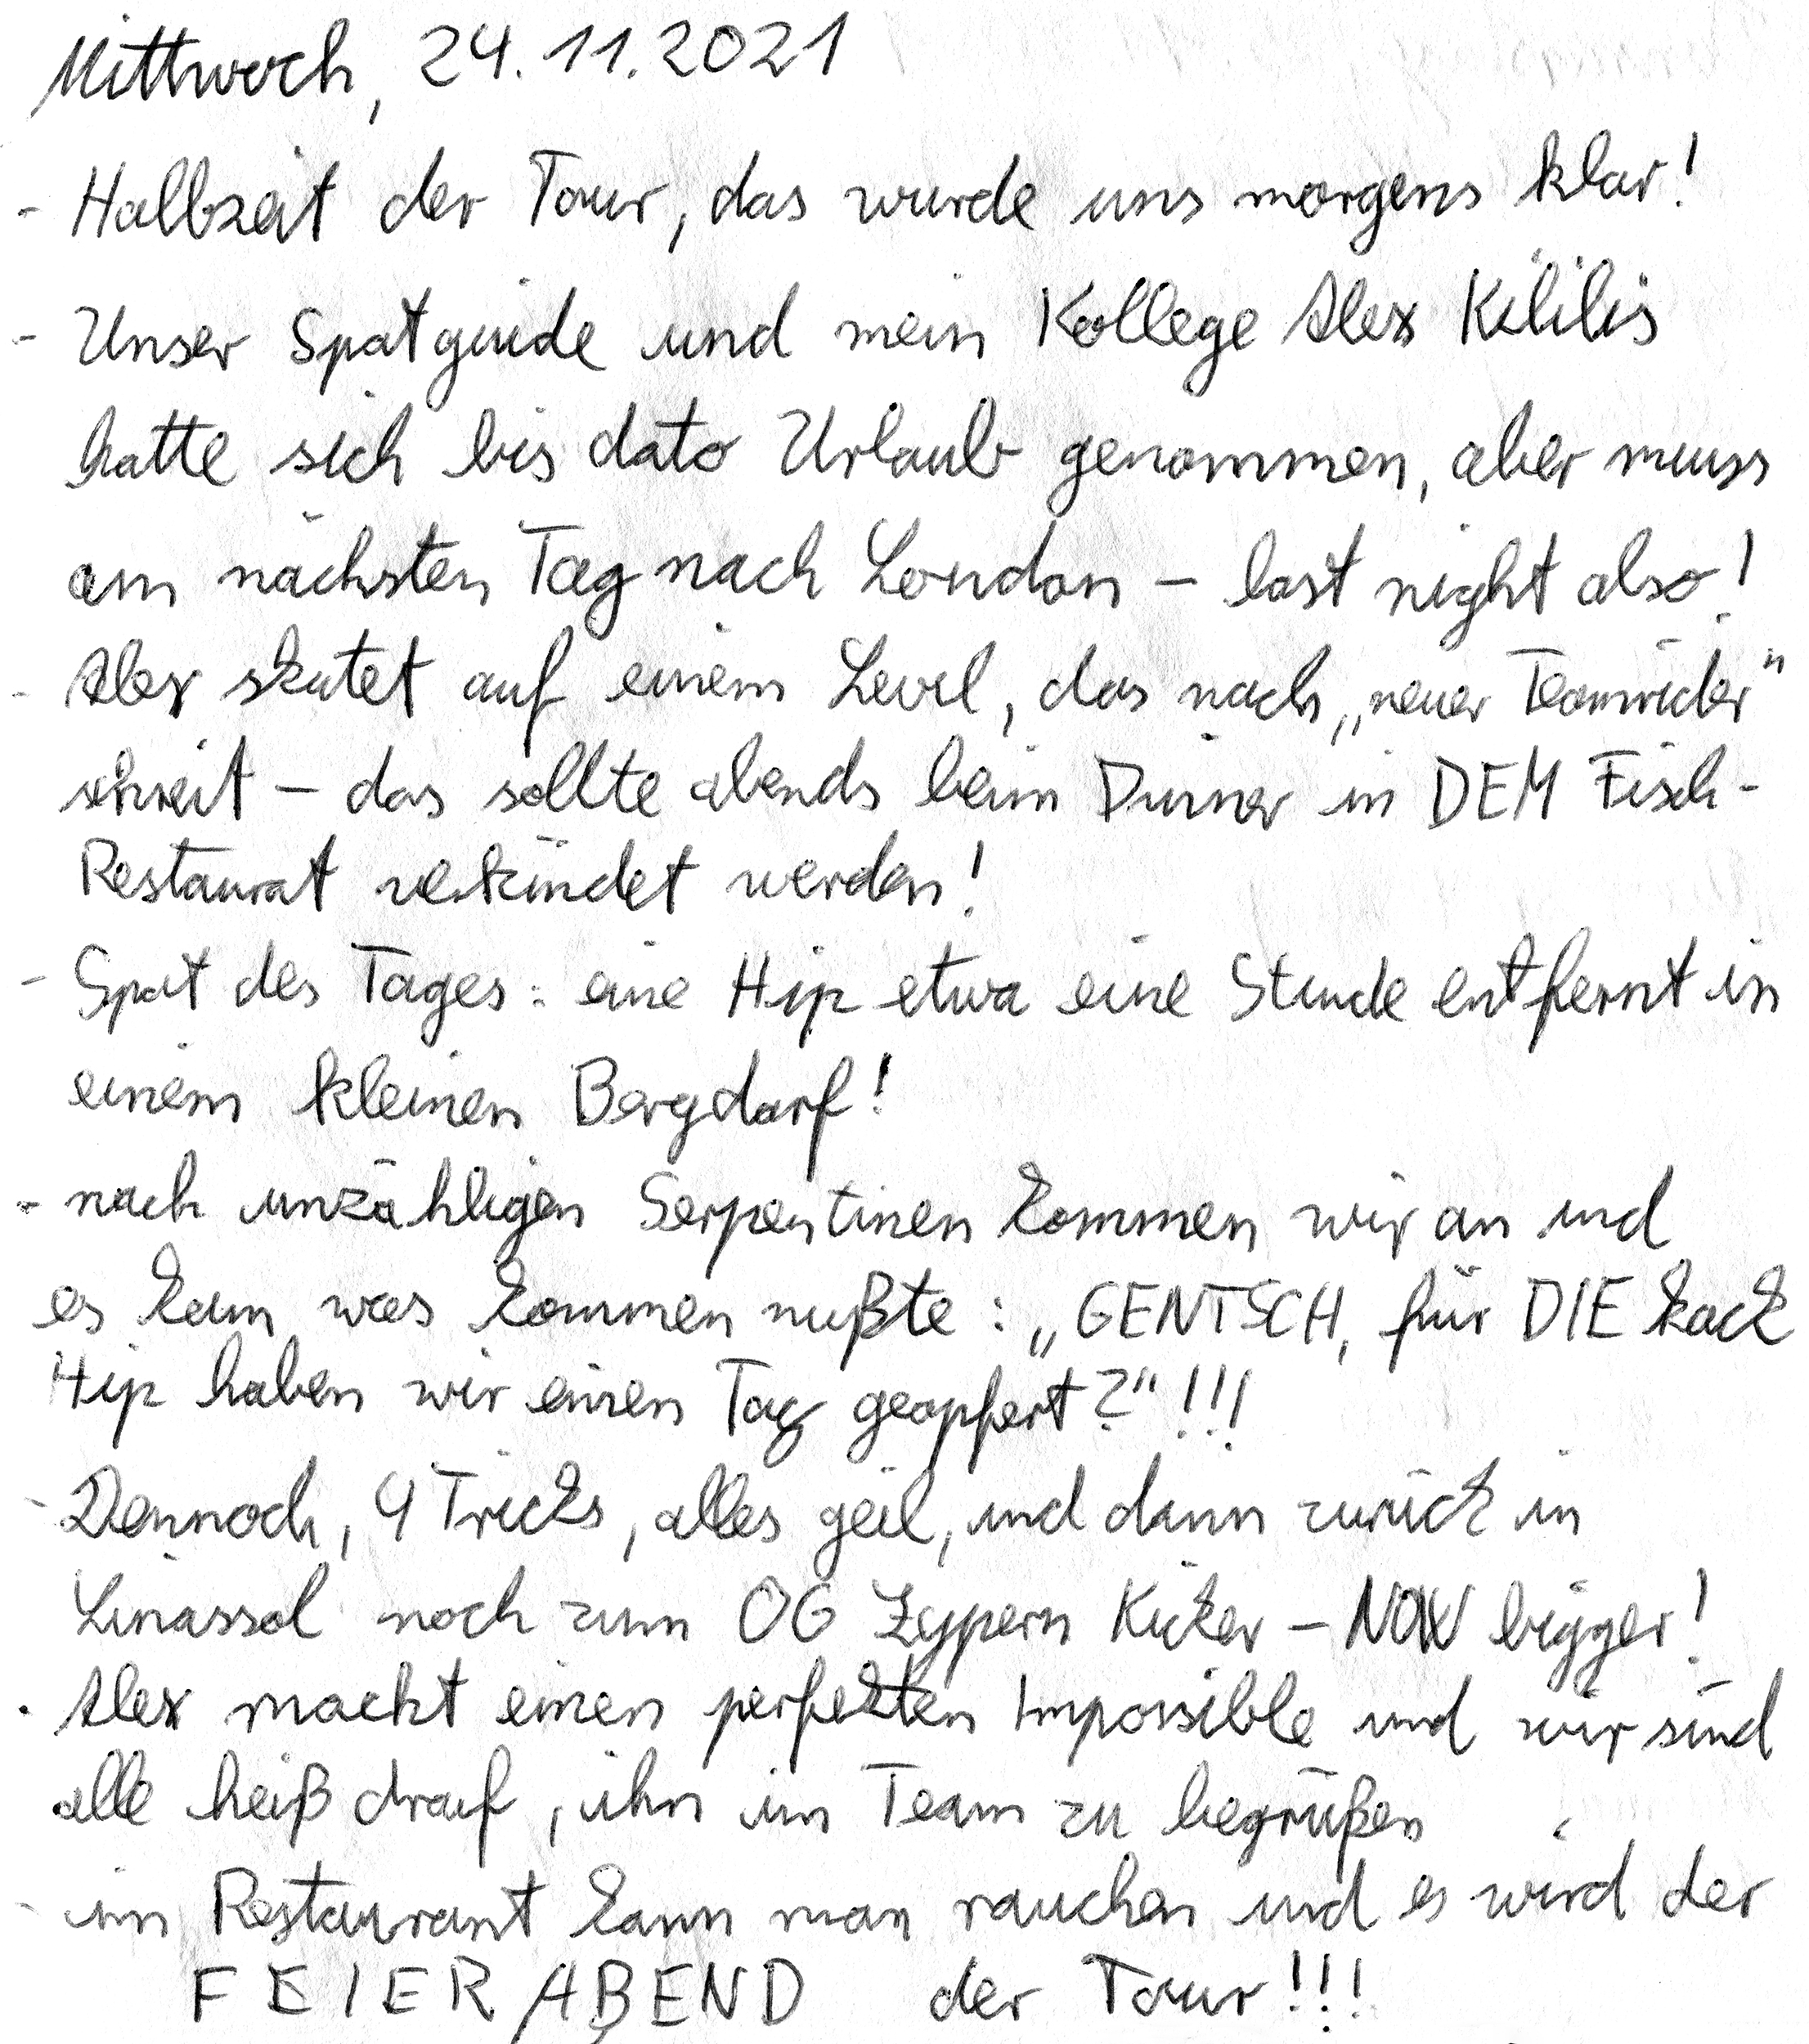 Mittwoch, 24.11.2021
- Halbzeit der Tour, das wurde uns morgens klar!
- Unser Spotguide und mein Kollege Alex Kililis
hatte sich bis dato Urlaub genommen, aber muss
am nächsten Tag nach London – last night also!
- Alex skatet auf einem Level, das nach „neuer Teamrider"
schreit – das sollte abends beim Dinner in DEM Fisch-
Restaurat verkündet werden!
- Spot des Tages: eine Hip etwa eine Stunde entfernt in
einem kleinen Bergdorf!
- nach unzähligen Serpentinen kommen wir an und
es kam was kommen mußte: „GENTSCH, für DIE kack
Hip haben wir einen Tag geopfert?"!!!
- Dennoch, 4 Tricks, alles geil, und dann zurück in
Limassol noch zum OG Zypern Kicker – NOW bigger!
- Alex macht einen perfekten Impossible und wir sind
alle heiß drauf, ihn im Team zu begrüßen
- im Restaurant kann man rauchen und es wird der
FEIERABEND der Tour!!!